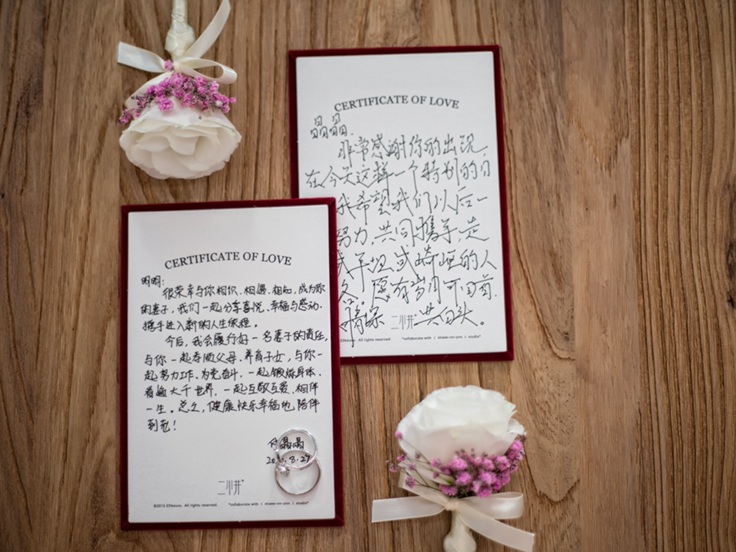 CERTIFICATE OF LOVE
晶晶:
非常感谢你的出现.
在今天这样一个特别的日
我希望我们以后一
努力,共同携手,走
或平坦或崎岖的人
愿有岁月可回首.
二小井 共白头。
CERTIFICATE OF LOVE
明明:
很荣幸与你相识、相遇、相知,成为你
的妻子,我们一起分享喜悦、幸福与感动.
携手进入新的人生旅程。
今后,我会履行好一名妻子的责任,
与你一起孝顺父母、养育子女,与你一
起努力工作、为党奋斗,一起锻炼身体、
看遍大千世界,一起互敬互爱、相伴
一生。总之,健康快乐幸福地陪伴
到老!
晶晶
二小井
All rights reserved.